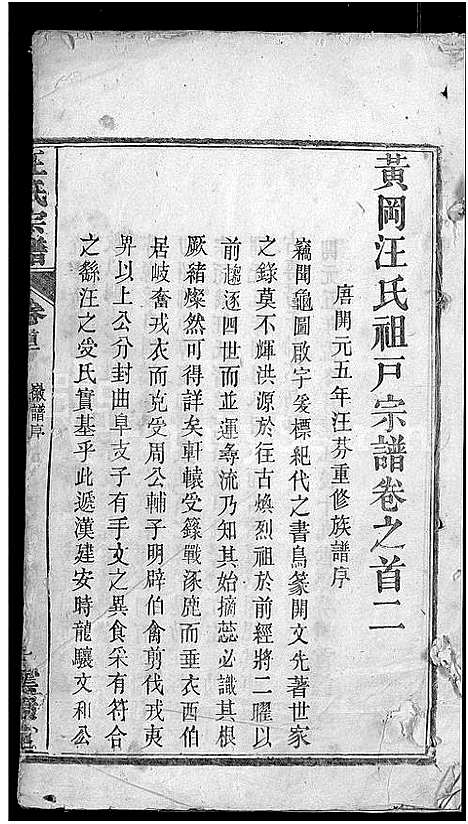 黃岡汪氏祖戸宗譜卷之首二
唐開元五年汪芬重修族譜序
竊聞龜圖啟宇爰標紀代之書鳥篆開文先著世家
之錄莫不輝洪源於往古煥烈祖於前經將二曜以
前趨逐四世而並運尋流乃知其始摘蕊必識其根
厥緒燦然可得詳矣軒轅受籙戰涿鹿而垂衣西伯
居岐奮戎衣而克受周公輔子明辟伯禽剪伐戎夷
畀以上公分封曲阜支子有手文之異食采有符合
之繇汪之受氏實基乎此遞漢建安時龍驤文和公
汪氏宗譜
卷首
徽譜序